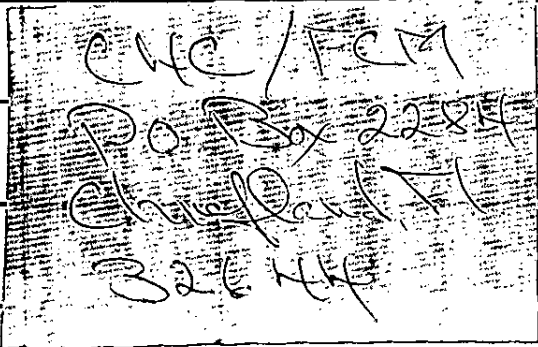 CHC/FCM
PO Box 2284
Chiefland, Fl
32644